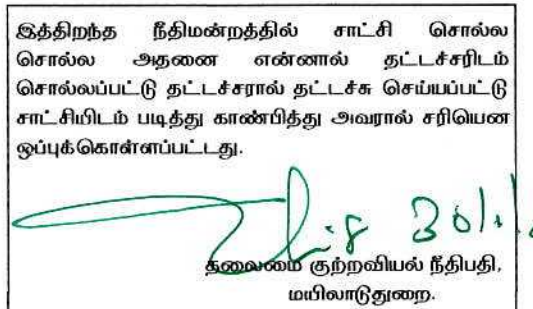 இத்திறந்த நீதிமன்றத்தில் சாட்சி சொல்ல
சொல்ல அதனை என்னால் தட்டச்சரிடம்
சொல்லப்பட்டு தட்டச்சரால் தட்டச்சு செய்யப்பட்டு
சாட்சியிடம் படித்து காண்பித்து அவரால் சரியென
ஒப்புக்கொள்ளப்பட்டது.
தலைமை குற்றவியல் நீதிபதி,
மயிலாடுதுறை.